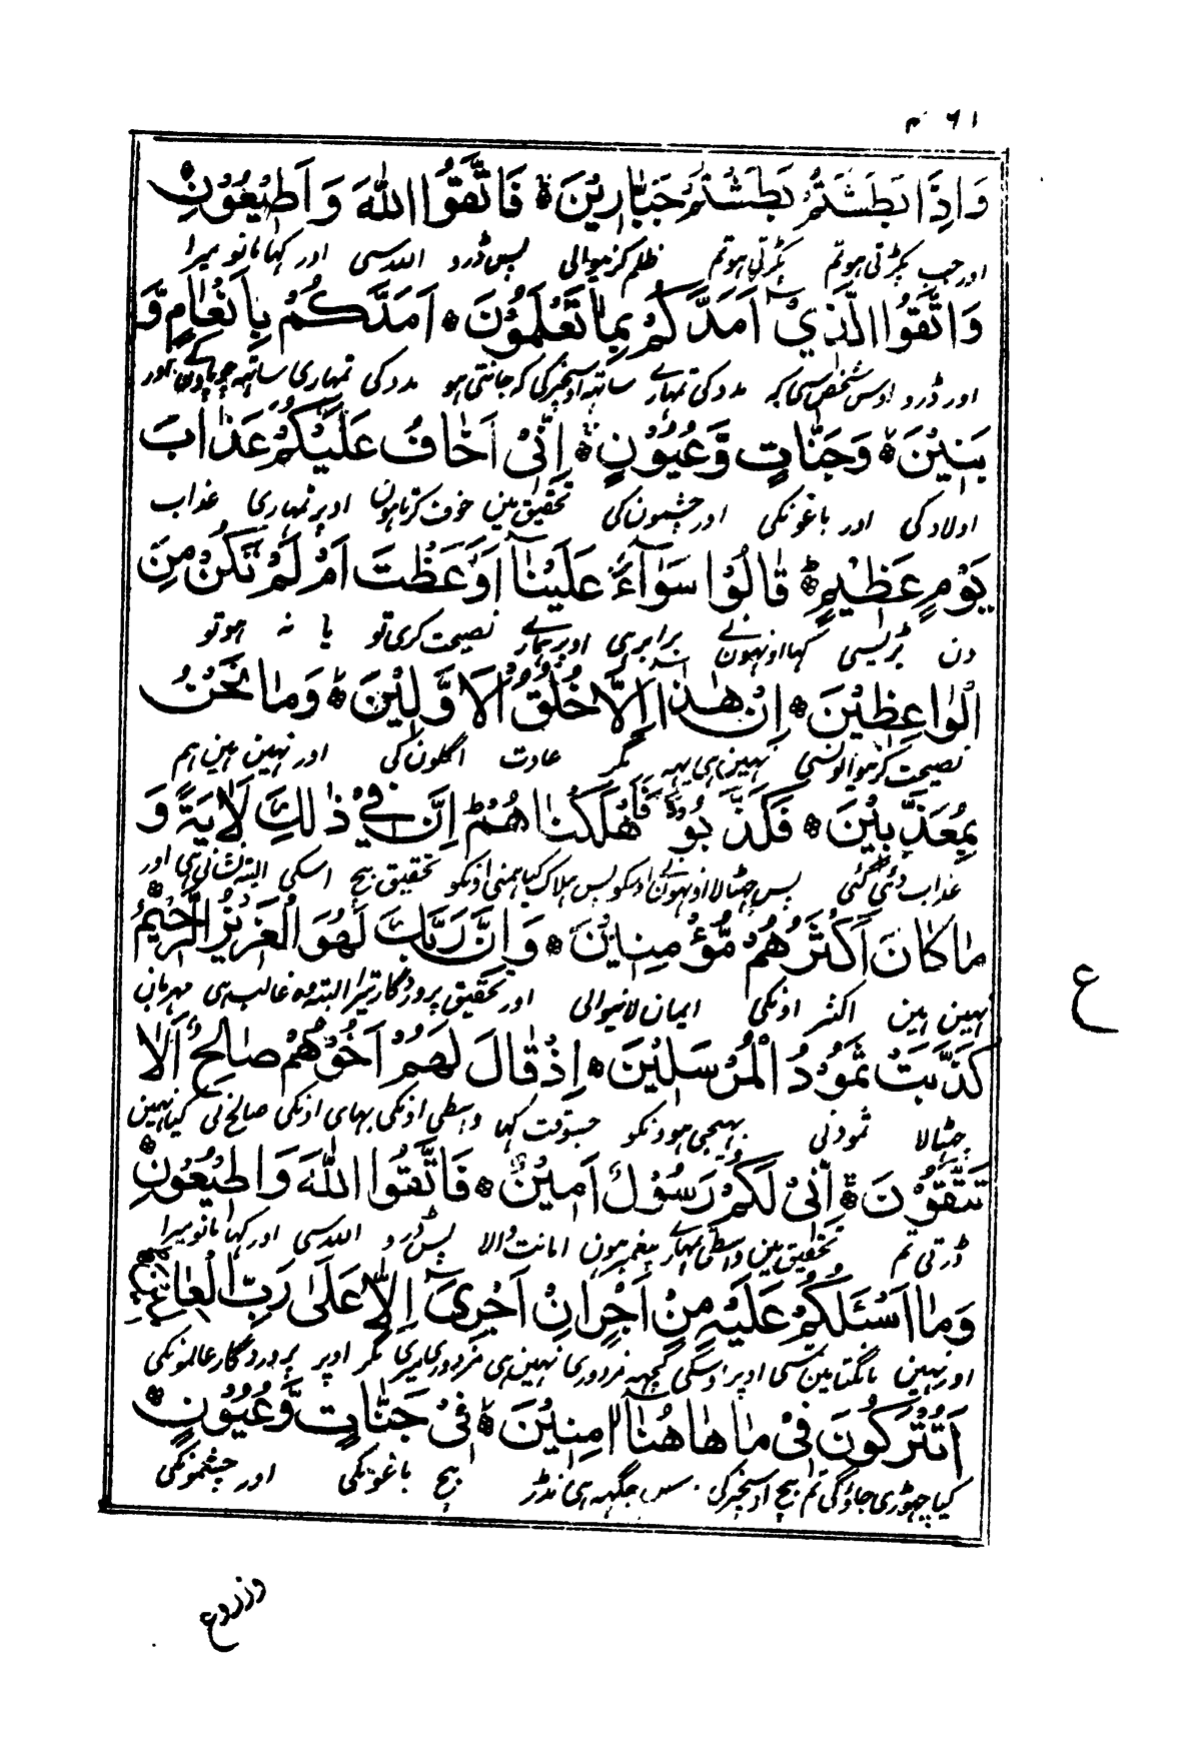 وَاِذَا بَطَشْتُمْ بَطَشْتُمْ جَبَّارِيْنَ فَاتَّقُوا اللّٰهَ وَاَطِيْعُوْنِ
اور جب پکڑتی ہو تم پکڑتی ہو تم ظلم کرنیوالی پس ڈرو اللہ سی اور کہا مانو میرا
وَاتَّقُوا الَّذِيْٓ اَمَدَّكُمْ بِمَا تَعْلَمُوْنَ اَمَدَّكُمْ بِاَنْعَامٍ وَّ
اور ڈرو اوس شخص سی کہ مدد کی تمہارے ساتہہ اوسچیز کی کہ جانتی ہو مدد کی تمہاری ساتہہ چوپاؤں اور
بَنِيْنَ وَجَنّٰتٍ وَّعُيُوْنٍ اِنِّيْ اَخَافُ عَلَيْكُمْ عَذَابَ
اولاد کی اور باغونکی اور چشمون کی تحقیق مین خوف کرتا ہون اوپر تمہاری عذاب
يَوْمٍ عَظِيْمٍ قَالُوْا سَوَآءٌ عَلَيْنَآ اَوَعَظْتَ اَمْ لَمْ تَكُنْ مِنَ
دن بڑیسی کہا اونہون نے برابر ہی اوپر ہمارے نصیحت کری تو یا نہ ہو تو
الْوَاعِظِيْنَ اِنْ هٰذَا اِلَّا خُلُقُ الْاَوَّلِيْنَ وَمَا نَحْنُ
نصیحت کرنیوالونسی نہین ہی یہہ مگر عادت اگلون کی اور نہین ہین ہم
بِمُعَذَّبِيْنَ فَكَذَّبُوْهُ فَاَهْلَكْنَاهُمْ اِنَّ فِيْ ذٰلِكَ لَاٰيَةً وَ
عذاب دئی گئی پس جہٹالا اونہون نے اوسکو پس ہلاک کیا ہمنی اونکو تحقیق بیچ اسکی البتہ نشانی ہی اور
مَا كَانَ اَكْثَرُهُمْ مُّؤْمِنِيْنَ وَاِنَّ رَبَّكَ لَهُوَ الْعَزِيْزُ الرَّحِيْمُ
نہین ہین اکثر اونکی ایمان لانیوالی اور تحقیق پروردگار تیرا البتہ وہ غالب ہی مہربان
ع
كَذَّبَتْ ثَمُوْدُ الْمُرْسَلِيْنَ اِذْ قَالَ لَهُمْ اَخُوْهُمْ صَالِحٌ اَلَا
جہٹالا ثمود نی بہیجی ہوونکو جسوقت کہا واسطی اونکی بہای اونکی صالح نی کیا نہین
تَتَّقُوْنَ اِنِّيْ لَكُمْ رَسُوْلٌ اَمِيْنٌ فَاتَّقُوا اللّٰهَ وَاَطِيْعُوْنِ
ڈرتی تم تحقیق مین واسطی تمہارے پیغمبر ہون امانت والا پس ڈرو اللہ سی اور کہا مانو میرا
وَمَا اَسْئَلُكُمْ عَلَيْهِ مِنْ اَجْرٍ اِنْ اَجْرِيَ اِلَّا عَلٰى رَبِّ الْعَالَمِيْنَ
اور نہین مانگتا مین تمسی اوپر اوسکی کچہہ مزدوری نہین ہی مزدوری میری مگر اوپر پروردگار عالمونکی
اَتُتْرَكُوْنَ فِيْ مَا هَاهُنَآ اٰمِنِيْنَ فِيْ جَنّٰتٍ وَّعُيُوْنٍ
کیا چہوڑی جاؤگی تم بیچ اوسچیز کی جگہہ ہی نڈر بیچ باغونکی اور چشمونکی
وزروع